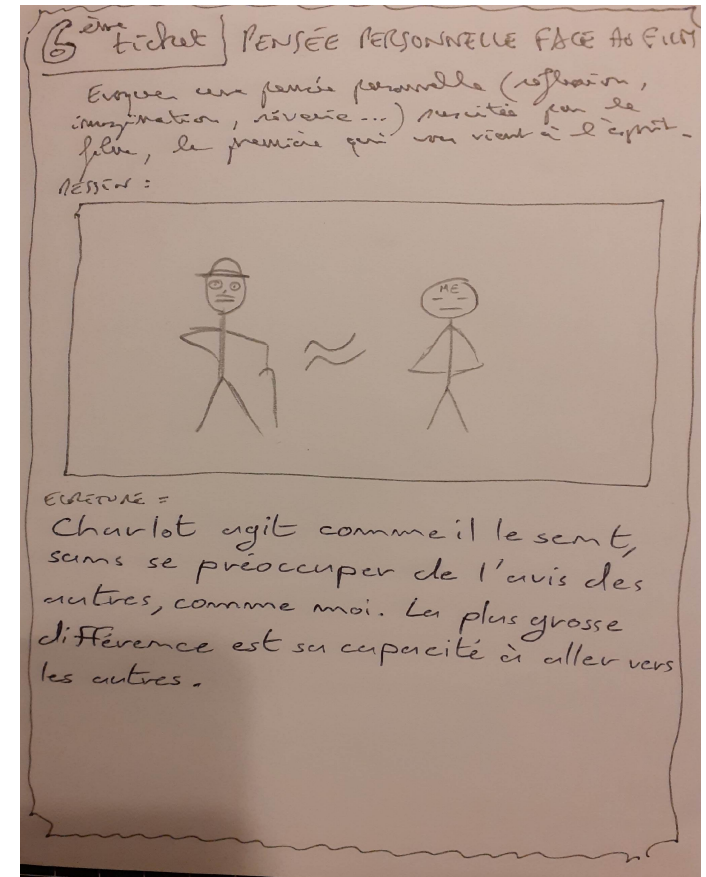 6ème ticket | PENSÉE PERSONNELLE FACE AU FILM
Evoquer une pensée personnelle (réflexion,
imagination, rêverie...) suscitée par le
film, la première qui vous vient à l'esprit.
DESSIN :
ME
ECRITURE =
Charlot agit comme il le sent,
sans se préoccuper de l'avis des
autres, comme moi. La plus grosse
différence est sa capacité à aller vers
les autres.